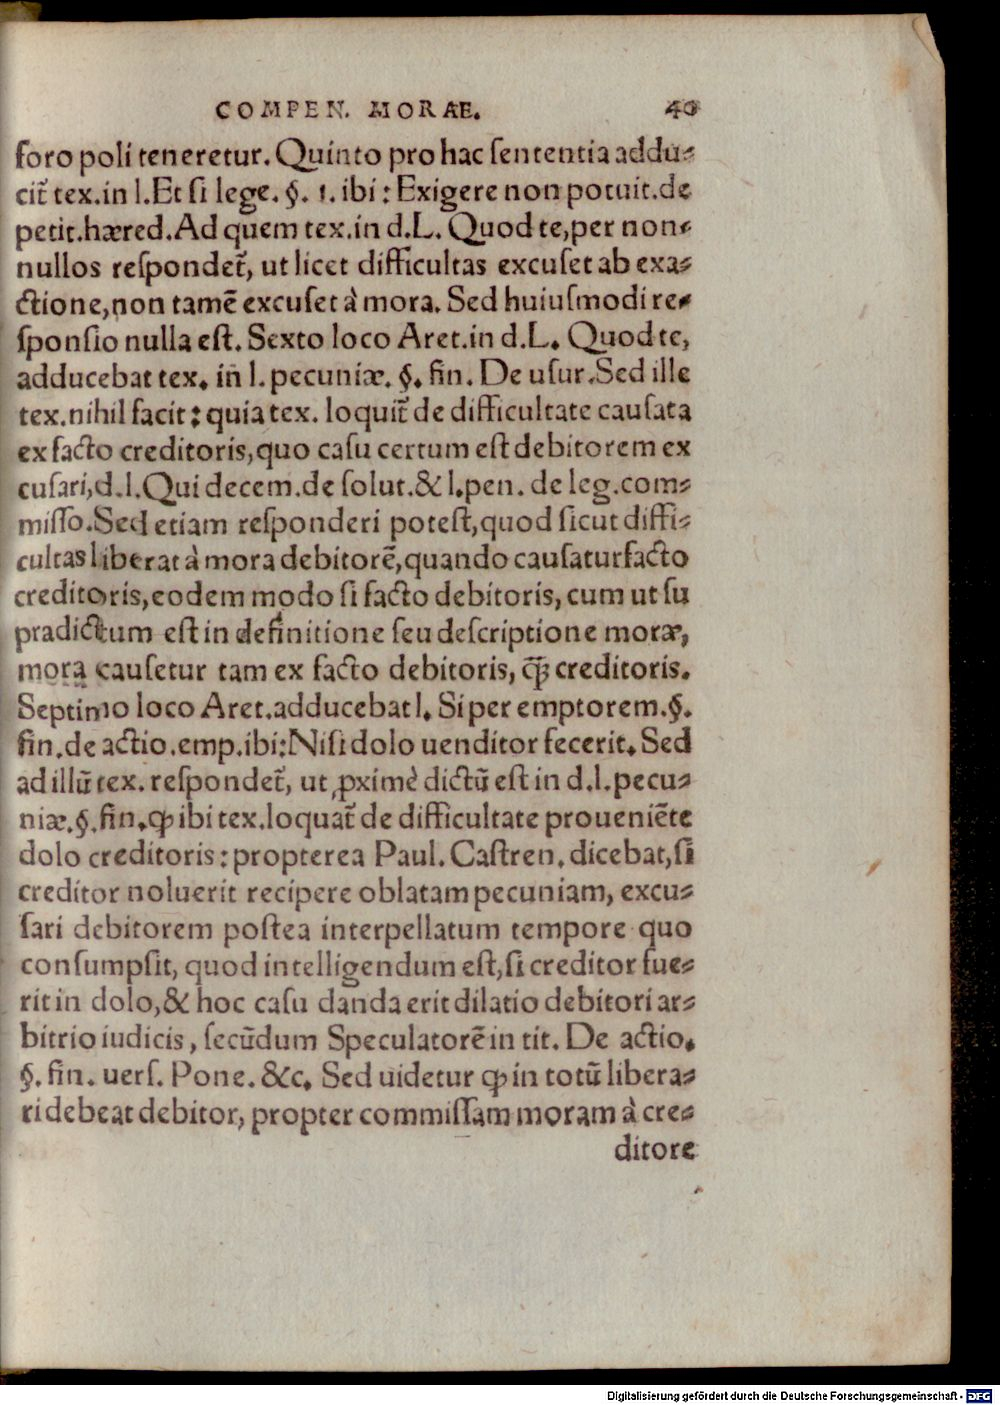 COMPEN. MORAE. 40
foro poli teneretur. Quinto pro hac sententia addu-
cit̃ tex. in l. Et si lege. §. 1. ibi: Exigere non potuit. de
petit. hæred. Ad quem tex. in d. L. Quod te, per non-
nullos respondet̃, ut licet difficultas excuset ab exa-
ctione, non tamẽ excuset à mora. Sed huiusmodi re-
sponsio nulla est. Sexto loco Aret. in d. L. Quod te,
adducebat tex. in l. pecuniæ. §. fin. De usur. Sed ille
tex. nihil facit: quia tex. loquit̃ de difficultate causata
ex facto creditoris, quo casu certum est debitorem ex
cusari, d. l. Qui decem. de solut. & l. pen. de leg. com-
misso. Sed etiam responderi potest, quod sicut diffi-
cultas liberat à mora debitorẽ, quando causatur facto
creditoris, eodem modo si facto debitoris, cum ut su
pradictum est in definitione seu descriptione moræ,
mora causetur tam ex facto debitoris, q̃ȝ creditoris.
Septimo loco Aret. adducebat l. Si per emptorem. §.
fin. de actio. emp. ibi: Nisi dolo uenditor fecerit. Sed
ad illũ tex. respondet̃, ut ꝓximè dictũ est in d. l. pecu-
niæ. §. fin. ꝙ ibi tex. loquat̃ de difficultate proueniẽte
dolo creditoris: propterea Paul. Castren. dicebat, si
creditor noluerit recipere oblatam pecuniam, excu-
sari debitorem postea interpellatum tempore quo
consumpsit, quod intelligendum est, si creditor fue-
rit in dolo, & hoc casu danda erit dilatio debitori ar-
bitrio iudicis, secũdum Speculatorẽ in tit. De actio.
§. fin. uers. Pone. &c. Sed uidetur ꝙ in totũ libera-
ri debeat debitor, propter commissam moram à cre-
ditore
Digitalisierung gefördert durch die Deutsche Forschungsgemeinschaft - DFG